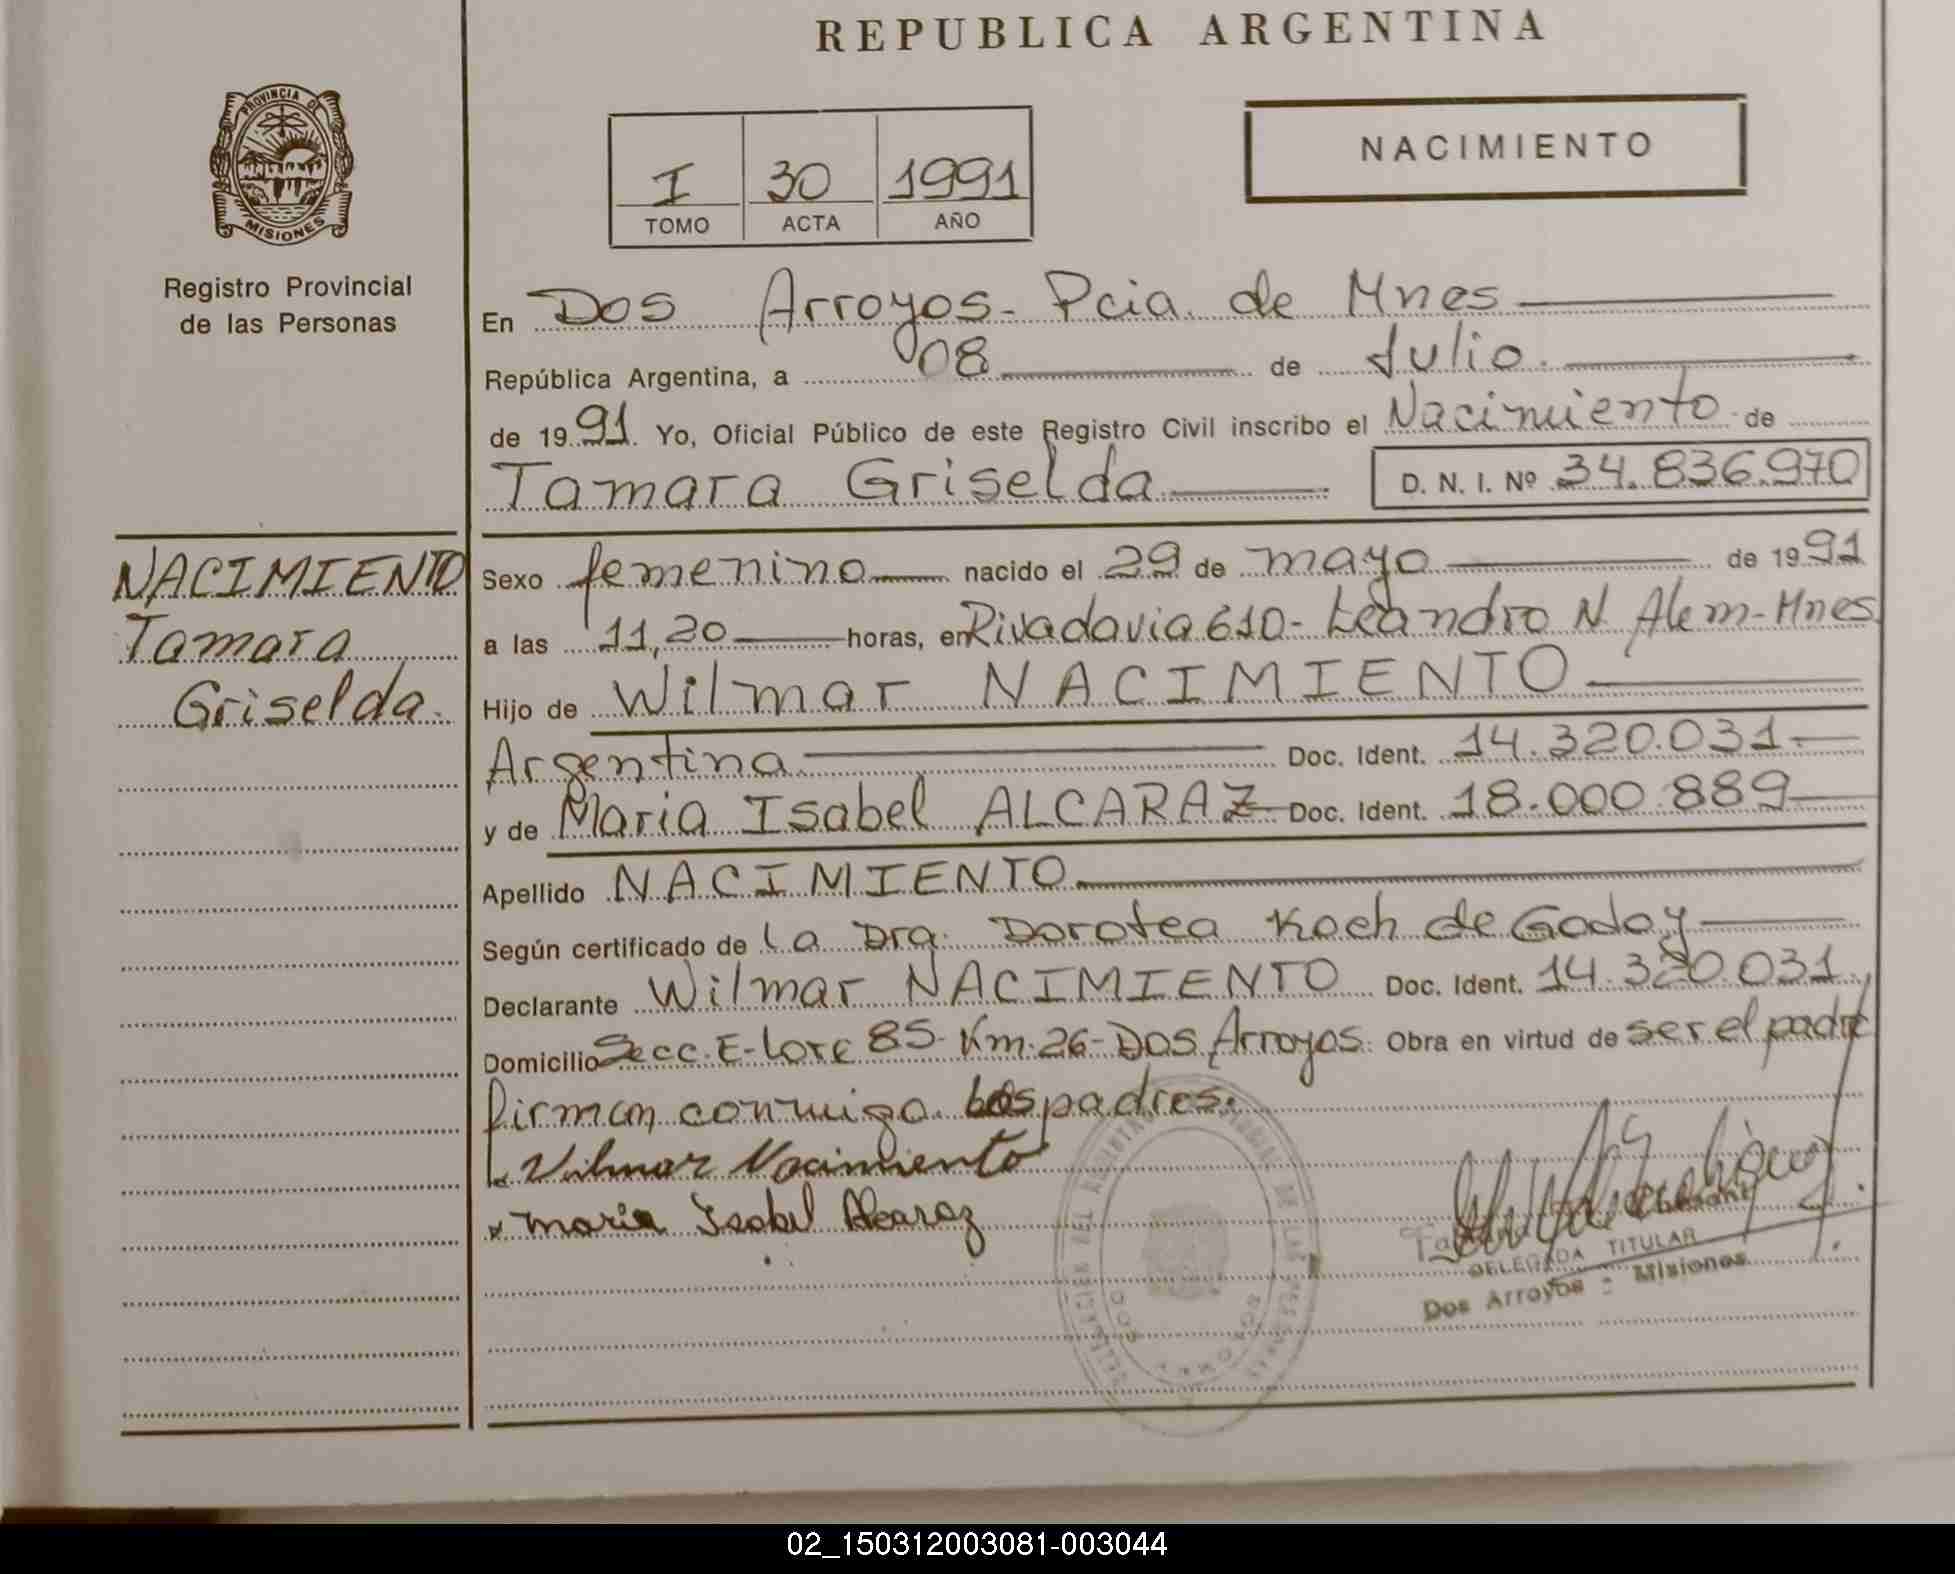 REPUBLICA ARGENTINA
PROVINCIA DE
MISIONES
Registro Provincial
de las Personas
I 30 1991
TOMO ACTA AÑO
NACIMIENTO
En Dos Arroyos - Pcia. de Mnes
República Argentina, a 08 de Julio.
de 1991. Yo, Oficial Público de este Registro Civil inscribo el Nacimiento de
Tamara Griselda D. N. I. Nº 34.836.970
NACIMIENTO
Tamara
Griselda.
Sexo femenino nacido el 29 de mayo de 1991
a las 11,20 horas, en Rivadavia 610 - Leandro N. Alem - Mnes
Hijo de Wilmar NACIMIENTO
Argentina Doc. Ident. 14.320.031
y de Maria Isabel ALCARAZ Doc. Ident. 18.000.889
Apellido NACIMIENTO
Según certificado de la Dra. Dorotea Koch de Godoy
Declarante Wilmar NACIMIENTO Doc. Ident. 14.320.031.
Domicilio Secc. E - Lote 85 - Km. 26 - Dos Arroyos. Obra en virtud de ser el padre
firman conmigo los padres.
Wilmar Nacimiento
x Maria Isabel Alcaraz
DELEGADA TITULAR
Dos Arroyos - Misiones
02_150312003081-003044